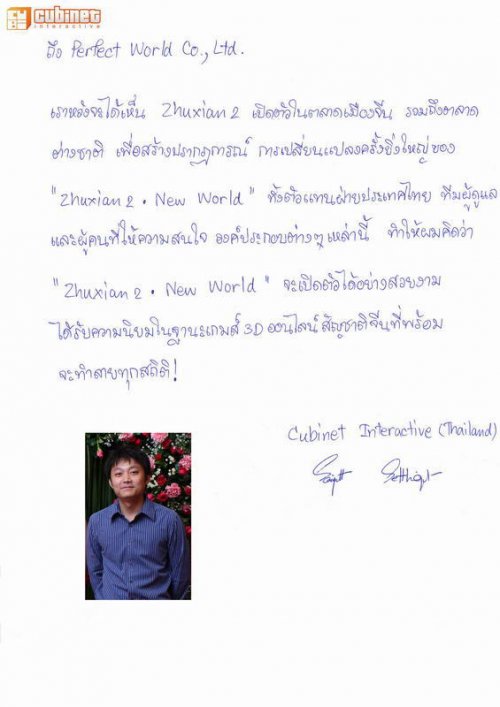 cubinet
interactive
ถึง Perfect World Co., Ltd.
เราหวังจะได้เห็น Zhuxian 2 เปิดตัวในตลาดเมืองจีน รวมถึงตลาด
ต่างชาติ เพื่อสร้างปรากฏการณ์ การเปลี่ยนแปลงครั้งยิ่งใหญ่ของ
"Zhuxian 2 · New World" ทั้งตัวแทนฝ่ายประเทศไทย ทีมผู้ดูแล
และผู้คนที่ให้ความสนใจ องค์ประกอบต่างๆ เหล่านี้ ทำให้ผมคิดว่า
"Zhuxian 2 · New World" จะเปิดตัวได้อย่างสวยงาม
ได้รับความนิยมในฐานะเกมส์ 3D ออนไลน์ สัญชาติจีนที่พร้อม
จะทำลายทุกสถิติ!
Cubinet Interactive (Thailand)